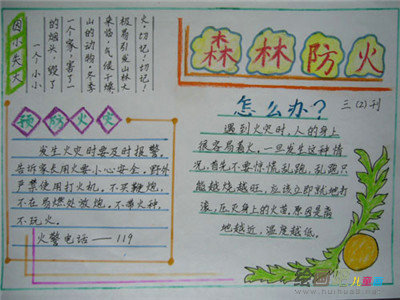 因小失大
一个小小
的烟头,毁了
一个家,害了一
山的动物。冬季
来临,气候干燥
极易引发山林大
火,切记!切记!
森林防火
预防火灾
发生火灾时要及时报警。
告诉家长用火要小心安全,野外
严禁使用打火机,不买鞭炮,
不在易燃处放炮,不带火种,
不玩火。
火警电话——119
怎么办?
三(2)刊
遇到火灾时,人的身上
很容易着火,一旦发生这种情
况,首先不要惊慌乱跑,乱跑只
能越烧越旺,应该立即就地打
滚,压灭身上的火苗。原因是离
地越近,温度越低。
www.huihua8.net